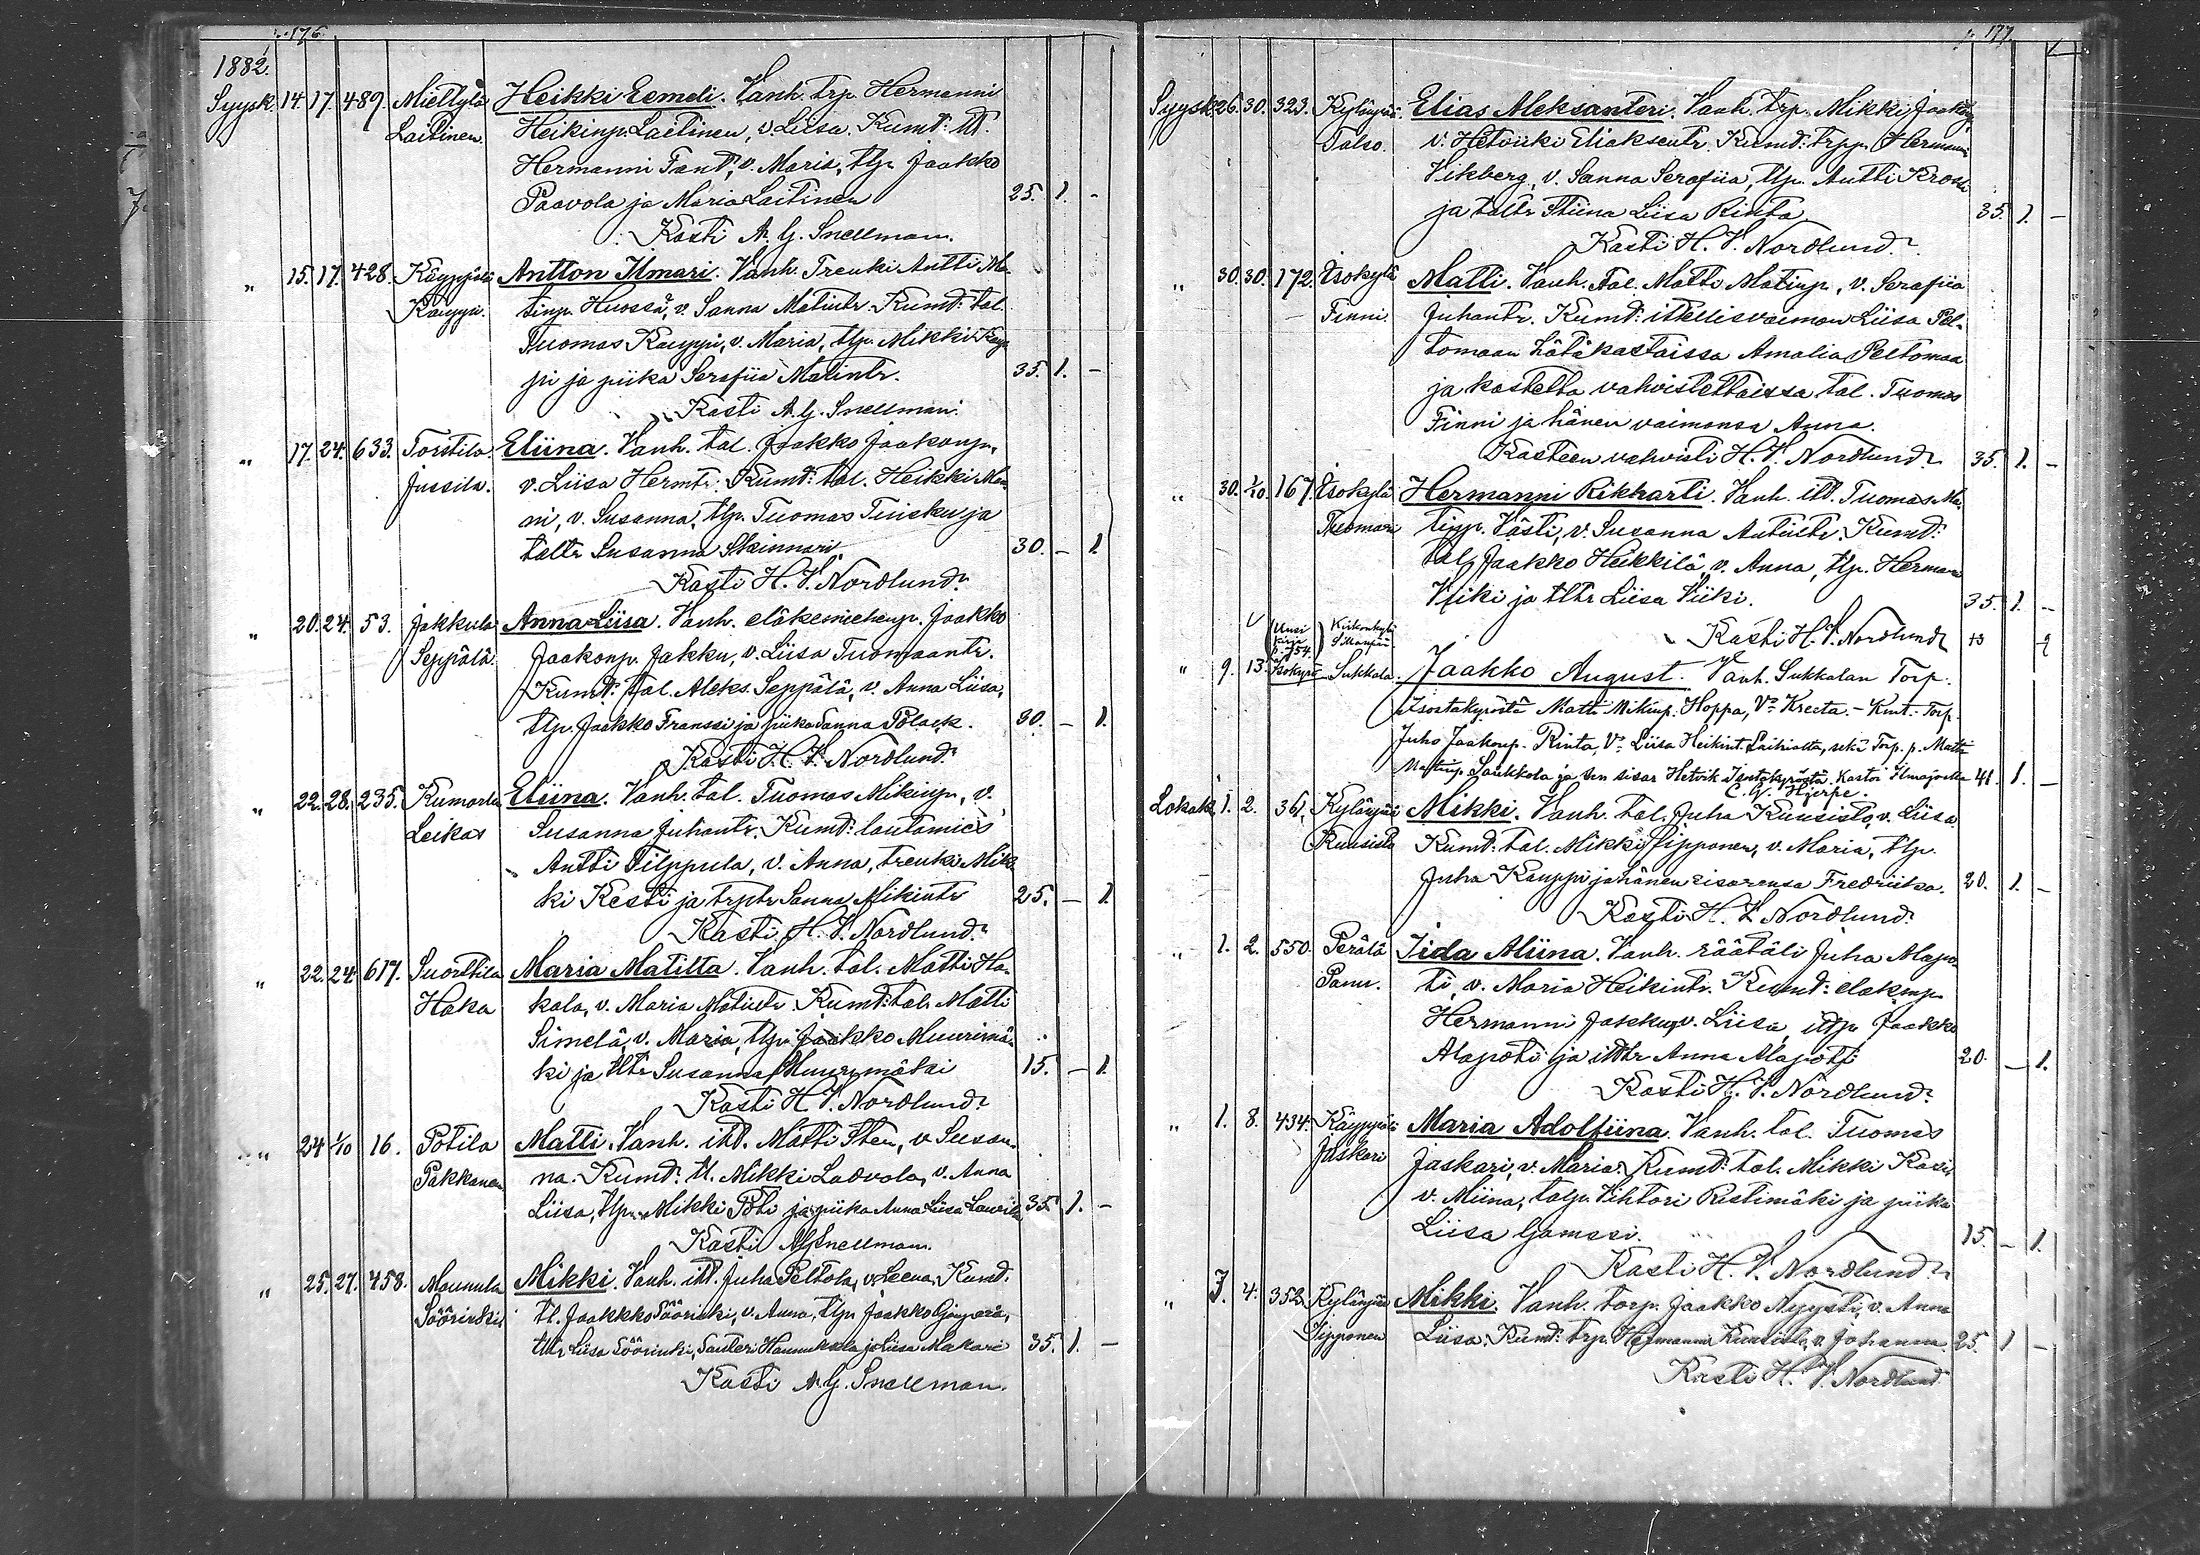 p. 176
1882.
Syysk. 14. 17. 489. Mieltylä Heikki Eemeli. Vanh. trp. Hermanni
Laitinen. Heikinp. Laitinen, v. Liisa. Kumd: tl.
Hermanni Fant, v. Maria, tlp. Jaakko
Paavola ja Maria Laitinen 25. 1. -
Kasti A. G. Snellman.
" 15. 17. 428. Käyppälä Antton Ilmari. Vanh. Trenki Antti Ma-
Kauppi. tinp. Huossa, v. Sanna Matintr. Kumd: tal.
Tuomas Kauppi, v. Maria, tlp. Mikki Kaup-
pi ja piika Serafiia Matintr. 35. 1. -
Kasti A. G. Snellman.
" 17. 24. 633. Torstila Eliina. Vanh. tal. Jaakko Jaakonp.,
Jussila. v. Liisa Hermtr. Kumd: tal. Heikki Man-
ni, v. Susanna, tlp. Tuomas Tuisku ja
taltr Susanna Skinnari. 30. - 1.
Kasti H. V. Nordlund.
" 20. 24. 53. Jakkula Anna Liisa. Vanh. eläkemiehenp. Jaakko
Seppälä. Jaakonp. Jakku, v. Liisa Tuomaantr.
Kumd: tal. Aleks. Seppälä, v. Anna Liisa,
tlp. Jaakko Franssi ja piika Sanna Polack. 30. - 1.
Kasti H. V. Nordlund.
" 22. 28. 235. Kumarla Eliina. Vanh. tal. Tuomas Mikinp., v.
Leikas Susanna Juhantr. Kumd: lautamies
Antti Filppula, v. Anna, trenki Mik-
ki Kesti ja trptr Sanna Mikintr 25. - 1.
Kasti H. V. Nordlund.
" 22. 24. 617. Suorttila Maria Matilta. Vanh. tal. Matti Ha-
Haka kala, v. Maria Matintr. Kumd: tal. Matti
Simelä, v. Maria, tlp. Jaakko Muurimä-
ki ja tltr Susanna Muurimäki 15. - 1.
Kasti H. V. Nordlund.
" 24 1/10 16. Potila Matti. Vanh. itl. Matti Sten, v. Susan-
Pakkanen na. Kumd: tl. Mikki Ladvola, v. Anna
Liisa, tlp. Mikki Poti ja piika Anna Liisa 35. 1. -
Kasti A G Snellman.
" 25. 27. 458. Maunula Mikki. Vanh. itl. Juha Peltola, v. Leena. Kumd:
Söörinki tl. Jaakkko Söörinki, v. Anna, tlp. Jaakko
tltr Liisa Söörinki, Santeri Hannuksela ja Liisa Makari 35. 1. -
Kasti A. G. Snellman.
p. 177.
Syysk. 26. 30. 323. Kylänpää Elias Aleksanteri. Vanh. trp. Mikki Jaakonp.,
Talso. v. Hetviiki Eliaksentr. Kumd: trpp. Hermanni
Vikberg, v. Sanna Serafiia, tlp. Antti
ja taltr Stiina Liisa Rinta. 35. 1. -
Kasti H. V. Nordlund.
" 30. 30. 172. Isokylä Matti. Vanh. tal. Matti Matinp., v. Serafiia
Finni. Juhantr. Kumd: itsellisvaimon Liisa Pel-
tomaan hätäkastaissa Amalia Peltomaa
ja kastetta vahvistettaissa tal. Tuomas
Finni ja hänen vaimonsa Anna.
Kasteen vahvisti H. V. Nordlund. 35. 1. -
" 30. 1/10 167. Isokylä Hermanni Rikharti. Vanh. itl. Tuomas Ma-
Tuomari tinp. Västi, v. Susanna Antintr. Kumd:
tal. Jaakko Heikkilä, v. Anna, tlp. Herman
Viiki ja tltr Liisa Viiki. 35. 1. -
Kasti H. V. Nordlund
(Uusi kirja p. 754.) Kirkonkylä
" 9. 13. Isokyrö Sukkala. Jaakko August. Vanh. Sukkalan Torp.
Isostakyröstä Matti Mikinp. Hoppa, Vo Kreeta. - Kmt. Torp.
Juho Jaakonp. Rinta, Vo Liisa Heikint. Laihialta, sekä Torp. p. Matti
Matinp. Saukkola ja sen sisar Hetvik Isostakyröstä. Kastoi Ilmajoella 41 1. -
C. G. Hjerpe.
Lokak. 1. 2. 361. Kylänpää Mikki. Vanh. tal. Juha Kuusisto, v. Liisa.
Kuusisto Kumd: tal. Mikki Sipponen, v. Maria, tlp.
Juha Kauppi ja hänen sisarensa Fredriiksa. 20. 1. -
Kasti H. V. Nordlund.
" 1. 2. 550. Perälä Iida Aliina. Vanh. räätäli Juha Alapo-
Panu. ti, v. Maria Heikintr. Kumd: eläkmp.
Hermanni Jakku, v. Liisa, itlp. Jaakko
Alapoti ja itltr Anna Alapoti 20. - 1.
Kasti H. V. Nordlund.
" 1. 8. 434. Käyppälä Maria Adolfiina. Vanh. tal. Tuomas
Jaskari Jaskari, v. Maria. Kumd: tal. Mikki
v. Miina, talp. Vihtori Ristimäki ja piika
Liisa Gamssi. 15. - 1.
Kasti H. V. Nordlund.
" 3. 4. 352. Kylänpää Mikki. Vanh. torp. Jaakko Nyysti, v. Anna
Sipponen Liisa. Kumd: trp. Hermanni Kuusisto, v. Johanna 25. 1 -
Kasti H. V. Nordlund